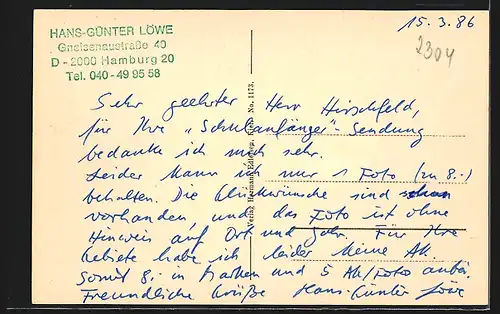 HANS-GÜNTER LÖWE
Gneisenaustraße 40
D-2000 Hamburg 20
Tel. 040-49 95 58
15.3.86
2304
Sehr geehrter Herr Hirschfeld,
für Ihre „Schulanfänger"-Sendung
bedanke ich mich sehr.
Leider kann ich nur 1 Foto (zu 8.-)
behalten. Die Glückwünsche sind schon
vorhanden, und das Foto ist ohne
Hinweis auf Ort und Jahr. Für Ihre
Gebiete habe ich leider keine AK.
Somit 8.- in Marken und 5 AK/Foto anbei.
Freundliche Grüße Hans-Günter Löwe
Verlag Hermann Edlef
Nr. 1173.